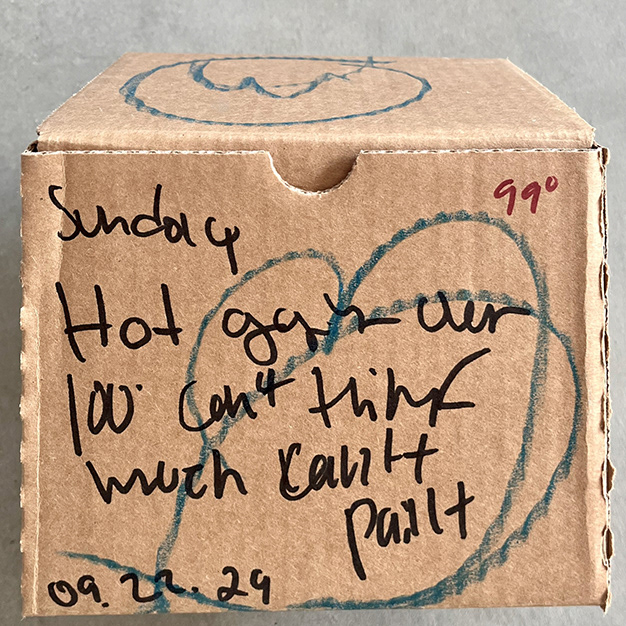 Sunday 99°
Hot again over
100° can't think
much can't
paint
09.22.24